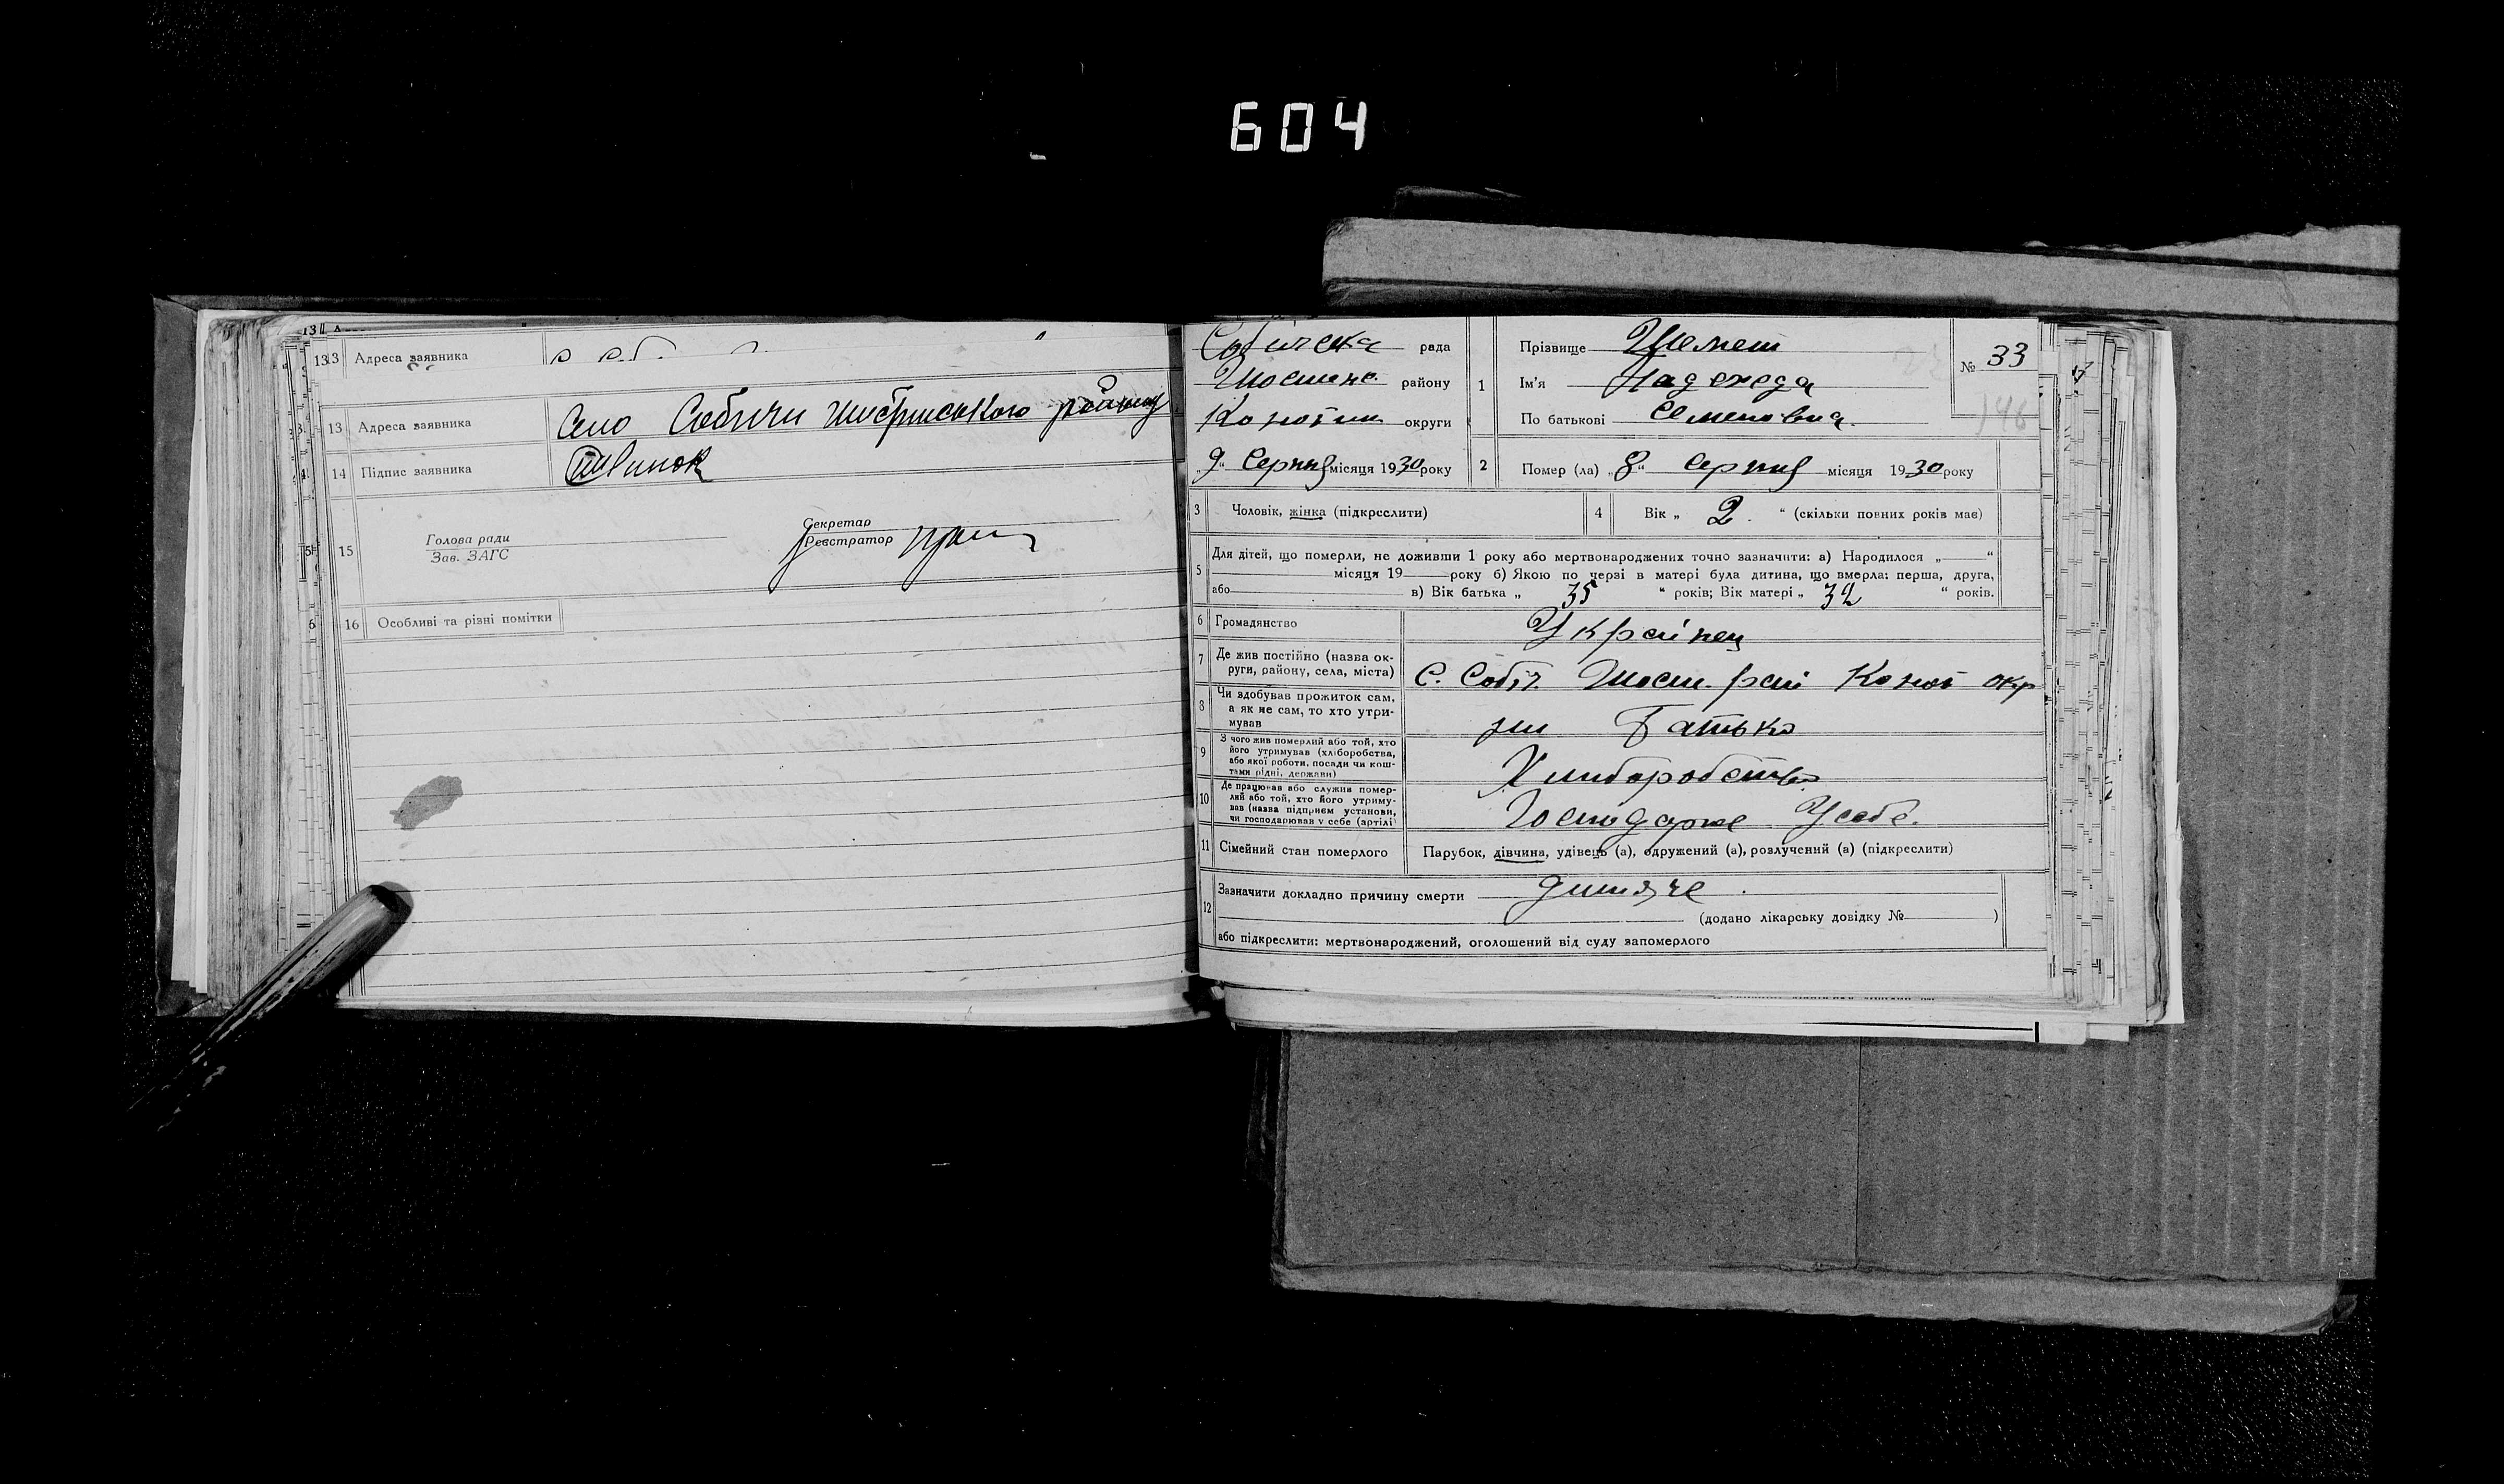 604
13 Адреса заявника
13 Адреса заявника Село Собичи Шостринського району
14 Підпис заявника
15 Голова ради
Зав. ЗАГС
Секретар
Реєстратор
16 Особливі та різні помітки
Собичска рада
Шостинс. району
Конотип округи
„9“ Серпня місяця 1930 року
1 Прізвище Шемет
Ім'я Надежда
По батькові Семеновна.
№ 33
146
2 Помер (ла) „8“ Серпня місяця 1930 року
3 Чоловік, жінка (підкреслити)
4 Вік „ 2. “ (скільки повних років мав)
5 Для дітей, що померли, не доживши 1 року або мертвонароджених точно зазначити: а) Народилося „ “
місяця 19 року б) Якою по черзі в матері була дитина, що вмерла: перша, друга,
або в) Вік батька „ 35 “ років; Вік матері „ 32 “ років.
6 Громадянство Українец
7 Де жив постійно (назва ок-
руги, району, села, міста) С. Собіч. Шост. рай Коноt окр
8 Чи здобував прожиток сам,
а як не сам, то хто утри-
мував Батько
9 З чого жив померлий або той, хто
його утримував (хліборобства,
або якої роботи, посади чи кош-
тами рідні, держави) Хлиборобство
10 Де працював або служив помер-
лий або той, хто його утриму-
вав (назва підприєм установи,
чи господарював у себе (артілі) Господарює У себе.
11 Сімейний стан померлого Парубок, дівчина, удівець (а), одружений (а), розлучений (а) (підкреслити)
12 Зазначити докладно причину смерти дитяче
(додано лікарську довідку № )
або підкреслити: мертвонароджений, оголошений від суду запомерлого